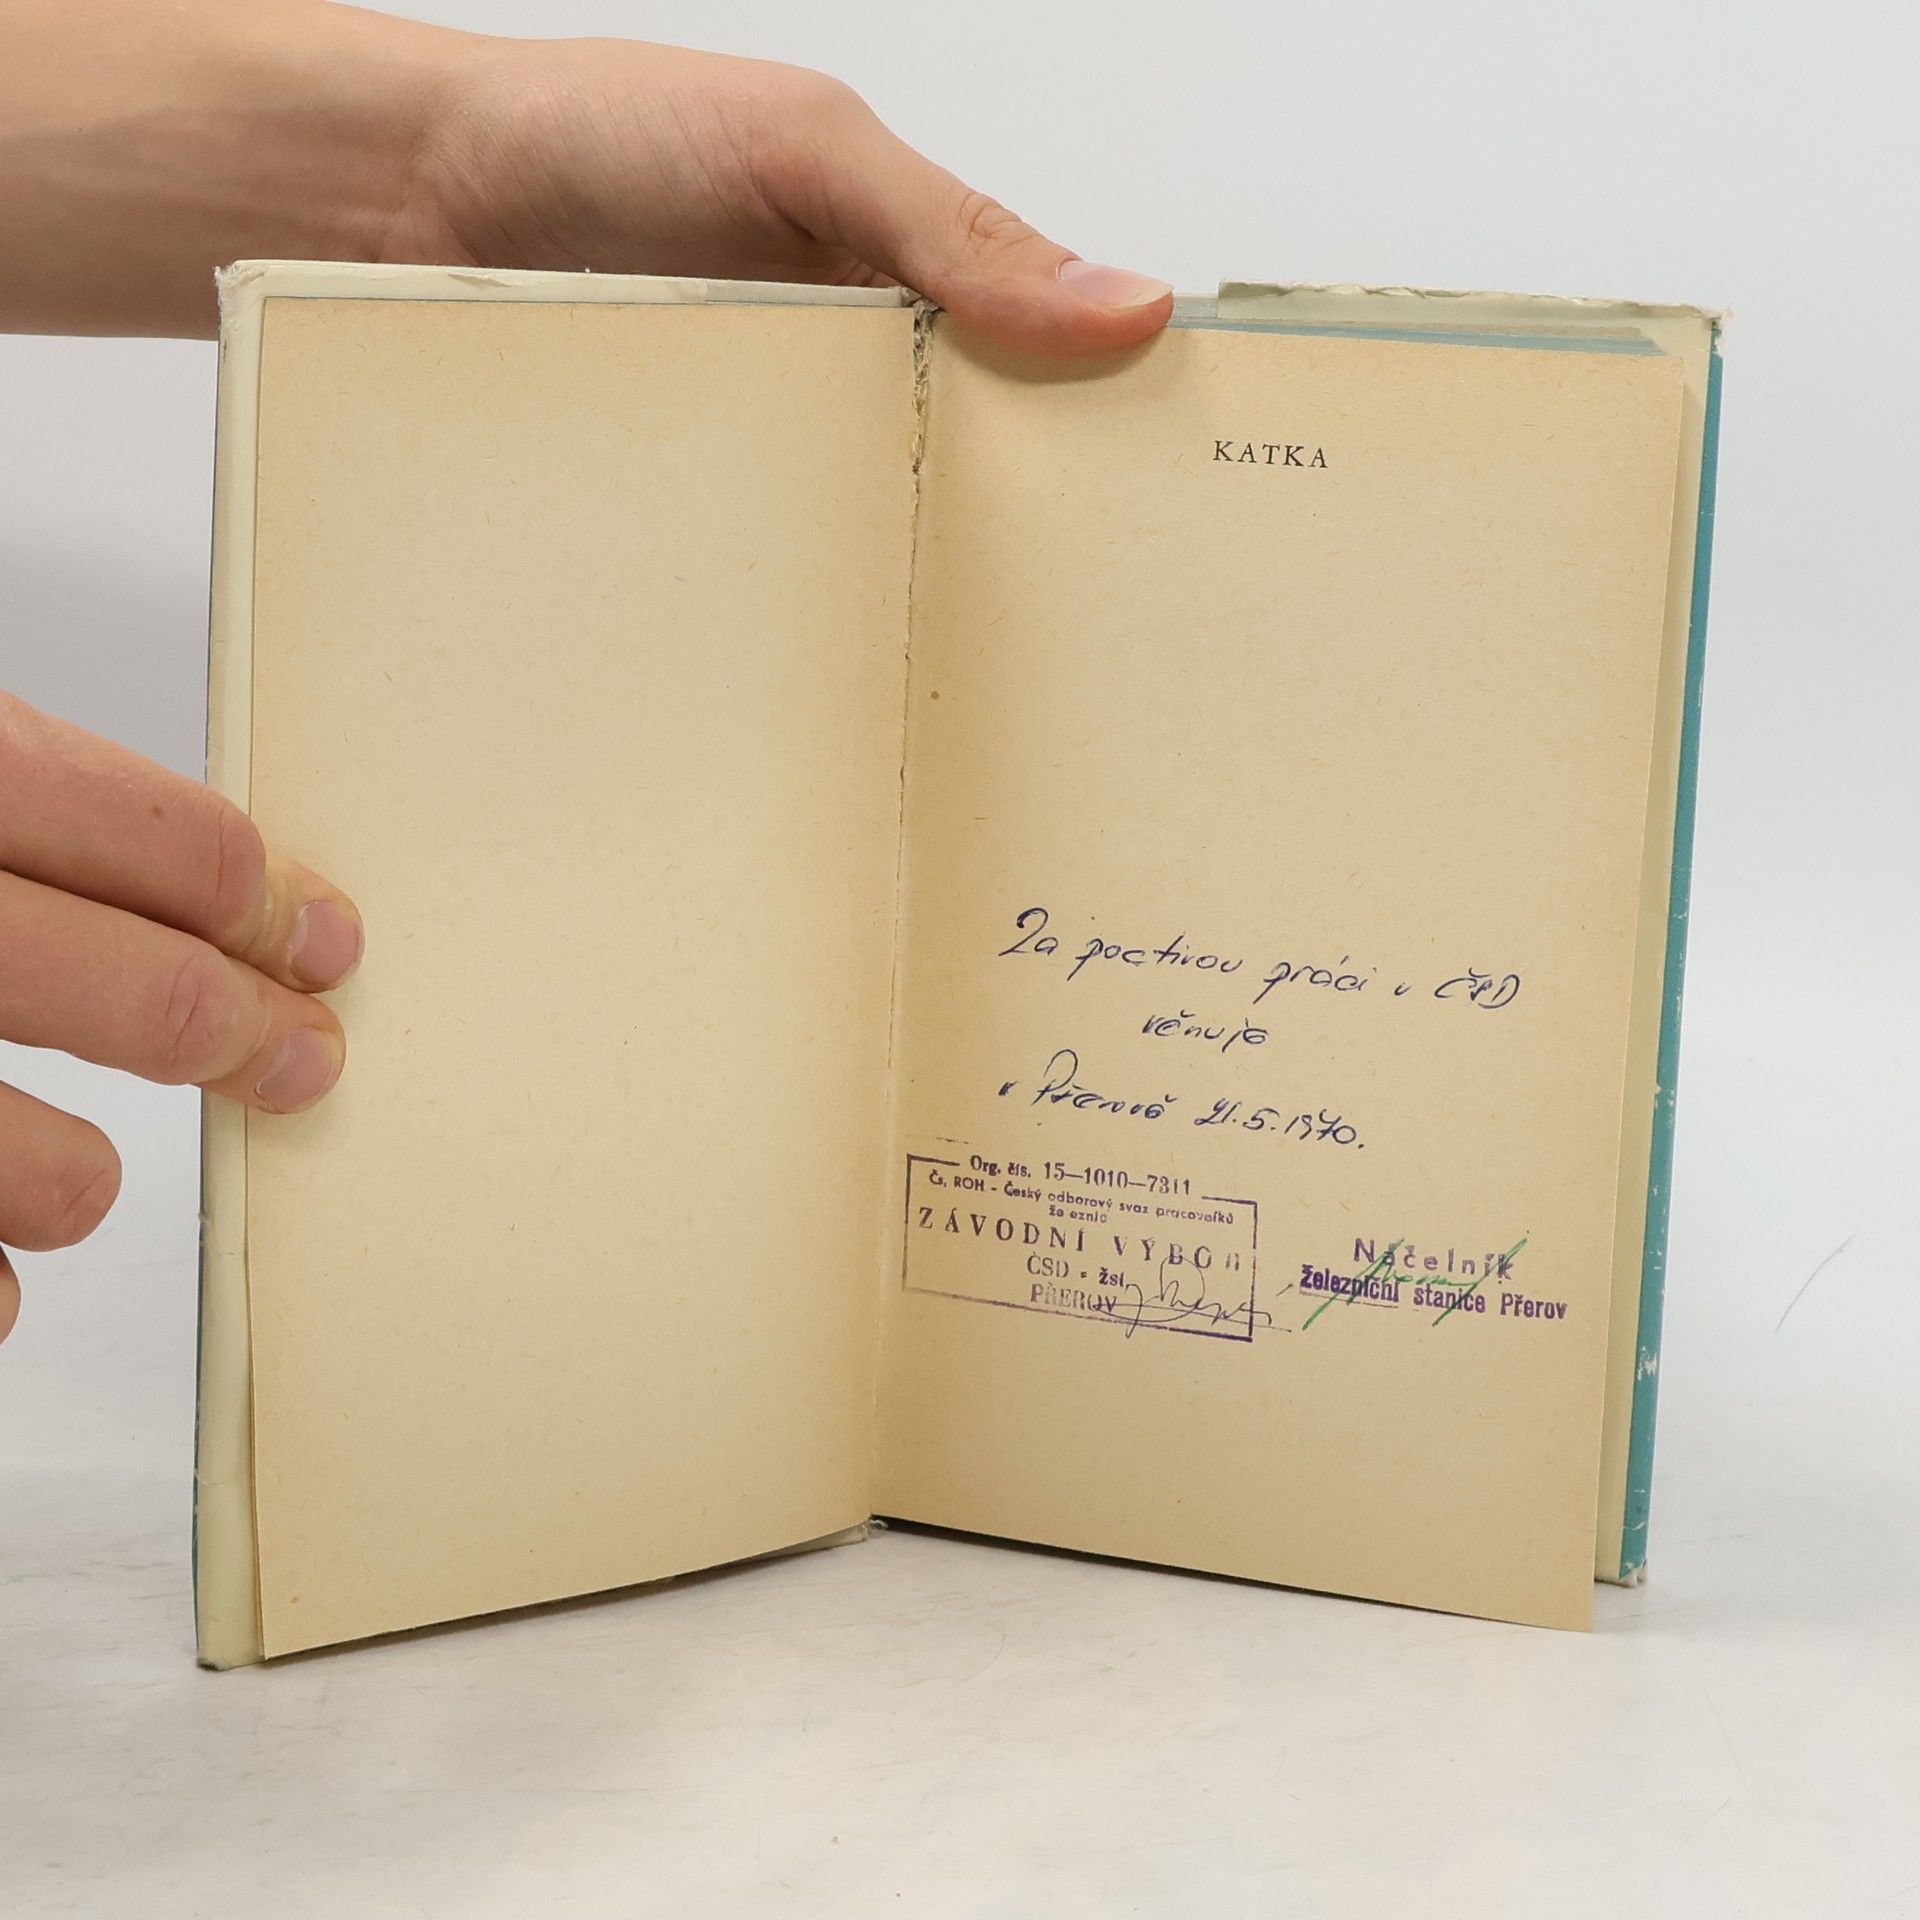 KATKA
Za poctivou práci u ČSD
věnuje
v Přerově 21.5.1970.
Org. čís. 15—1010—7311
Čs. ROH - Český odborový svaz pracovníků
že eznic
ZÁVODNÍ VÝBOR
ČSD - žst.
PŘEROV
Náčelník
železniční stanice Přerov